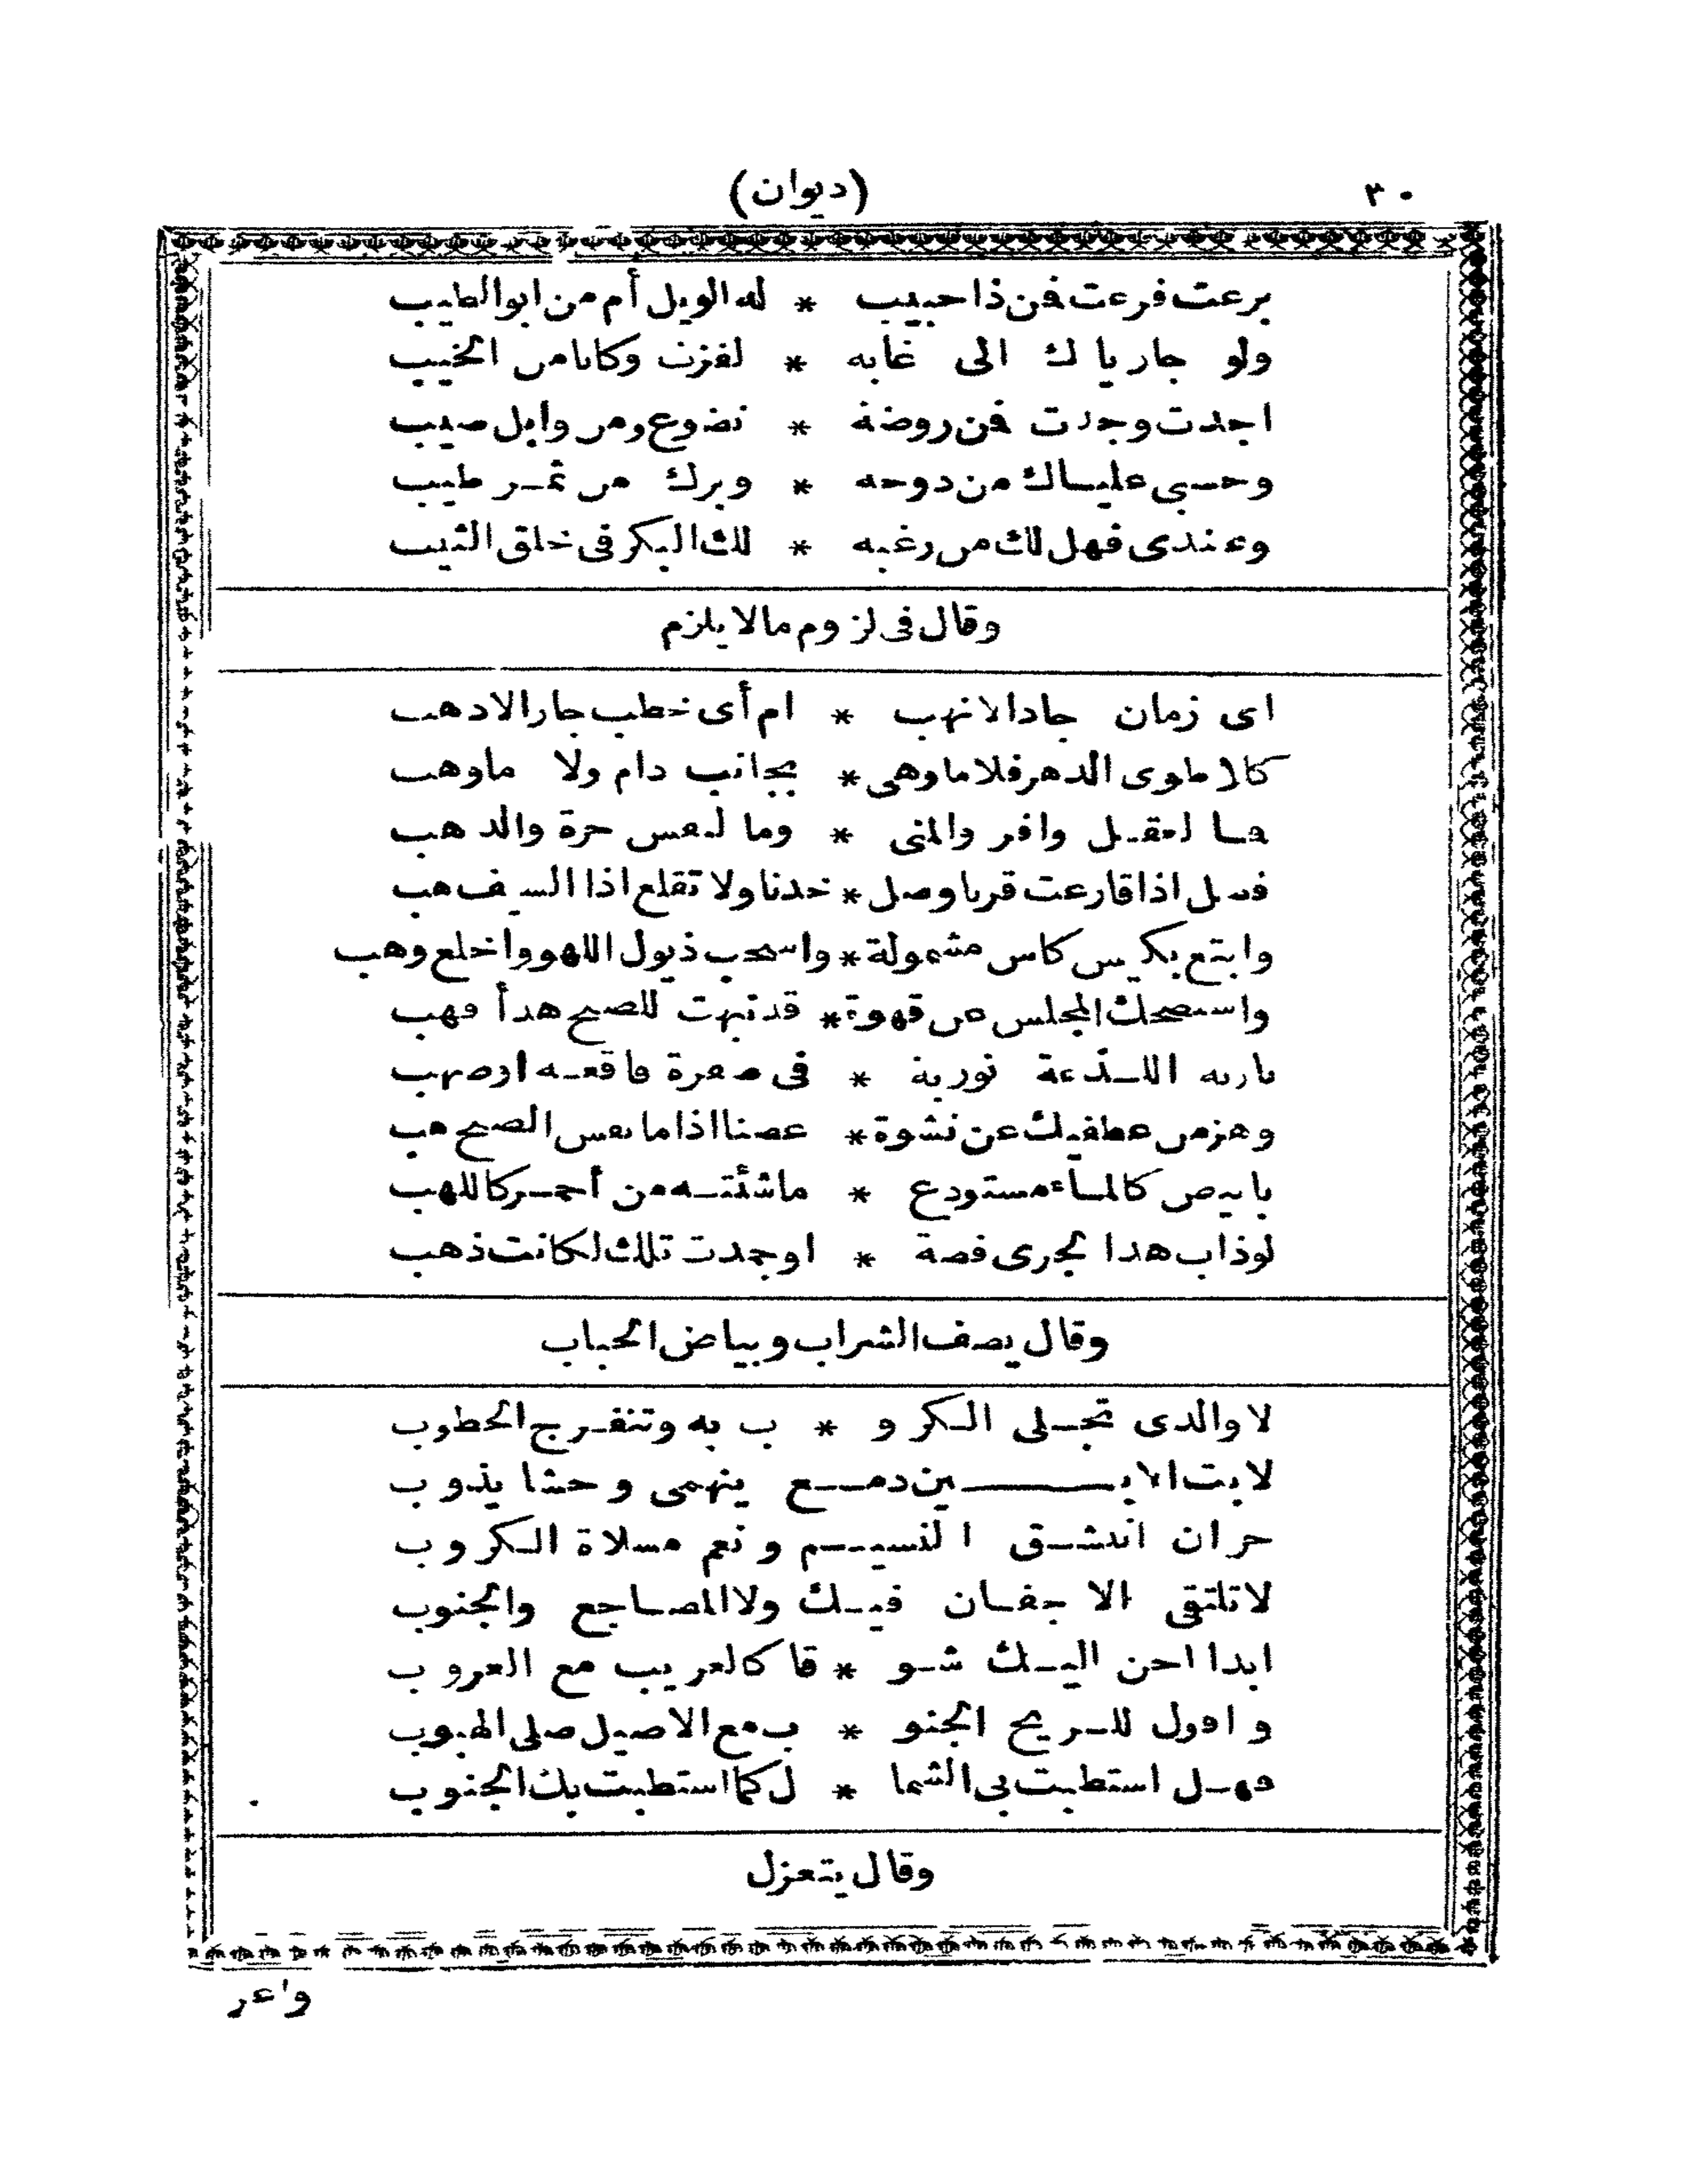 ٣٠
(ديوان)
برعت فرعت فمن ذا حبيب * له الويل أم من ابو الطيب
ولو جارياك الى غايه * لفزت وكانا من الخيب
اجدت وجدت فمن روضة * تضوع ومن وابل صيب
وحسبى عليساك من دوحه * وبرك من ثمر طيب
وعندى فهل لك من رغبه * لك البكر فى خلق الثيب
وقال فى لزوم ما لا يلزم
اى زمان جاد الا نهب * ام أى خطب جار الا دهب
كلا طوى الدهر فلا ما وهى * بجانب دام ولا ما وهب
فما لعقل وافر والمنى * وما لنفس حرة والذهب
فصل اذا قارعت قرنا وصل * خدنا ولا تقلع اذا السيف هب
وابتع بكيس كاس مشمولة * واسحب ذيول اللهو واخلع وهب
واستضحك المجلس عن قهوة * قد نبهت للصبح هدأ فهب
نارية اللذعة نورية * فى صفرة فاقعة او صهب
وهز من عطفيك عن نشوة * غصنا اذا ما نفس الصبح هب
بابيض كالماء مستودع * ما شئته من أحمر كاللهب
لو ذاب هذا لجرى فضة * او جمدت تلك لكانت ذهب
وقال يصف الشراب وبياض الحباب
لا والذى تجلى الكرو * ب به وتنفرج الخطوب
لا بت الا بين دمع ينهمى وحشا يذوب
حران انتشق النسيم ونعم مسلاة الكروب
لا تلتقى الاجفان فيك ولا المضاجع والجنوب
ابدا احن اليك شو * قا كالغريب مع الغروب
واقول للريح الجنو * ب مع الاصيل صلى الهبوب
فهل استطبت بى الشما * ل كما استطبت بك الجنوب
وقال يتغزل
واغر